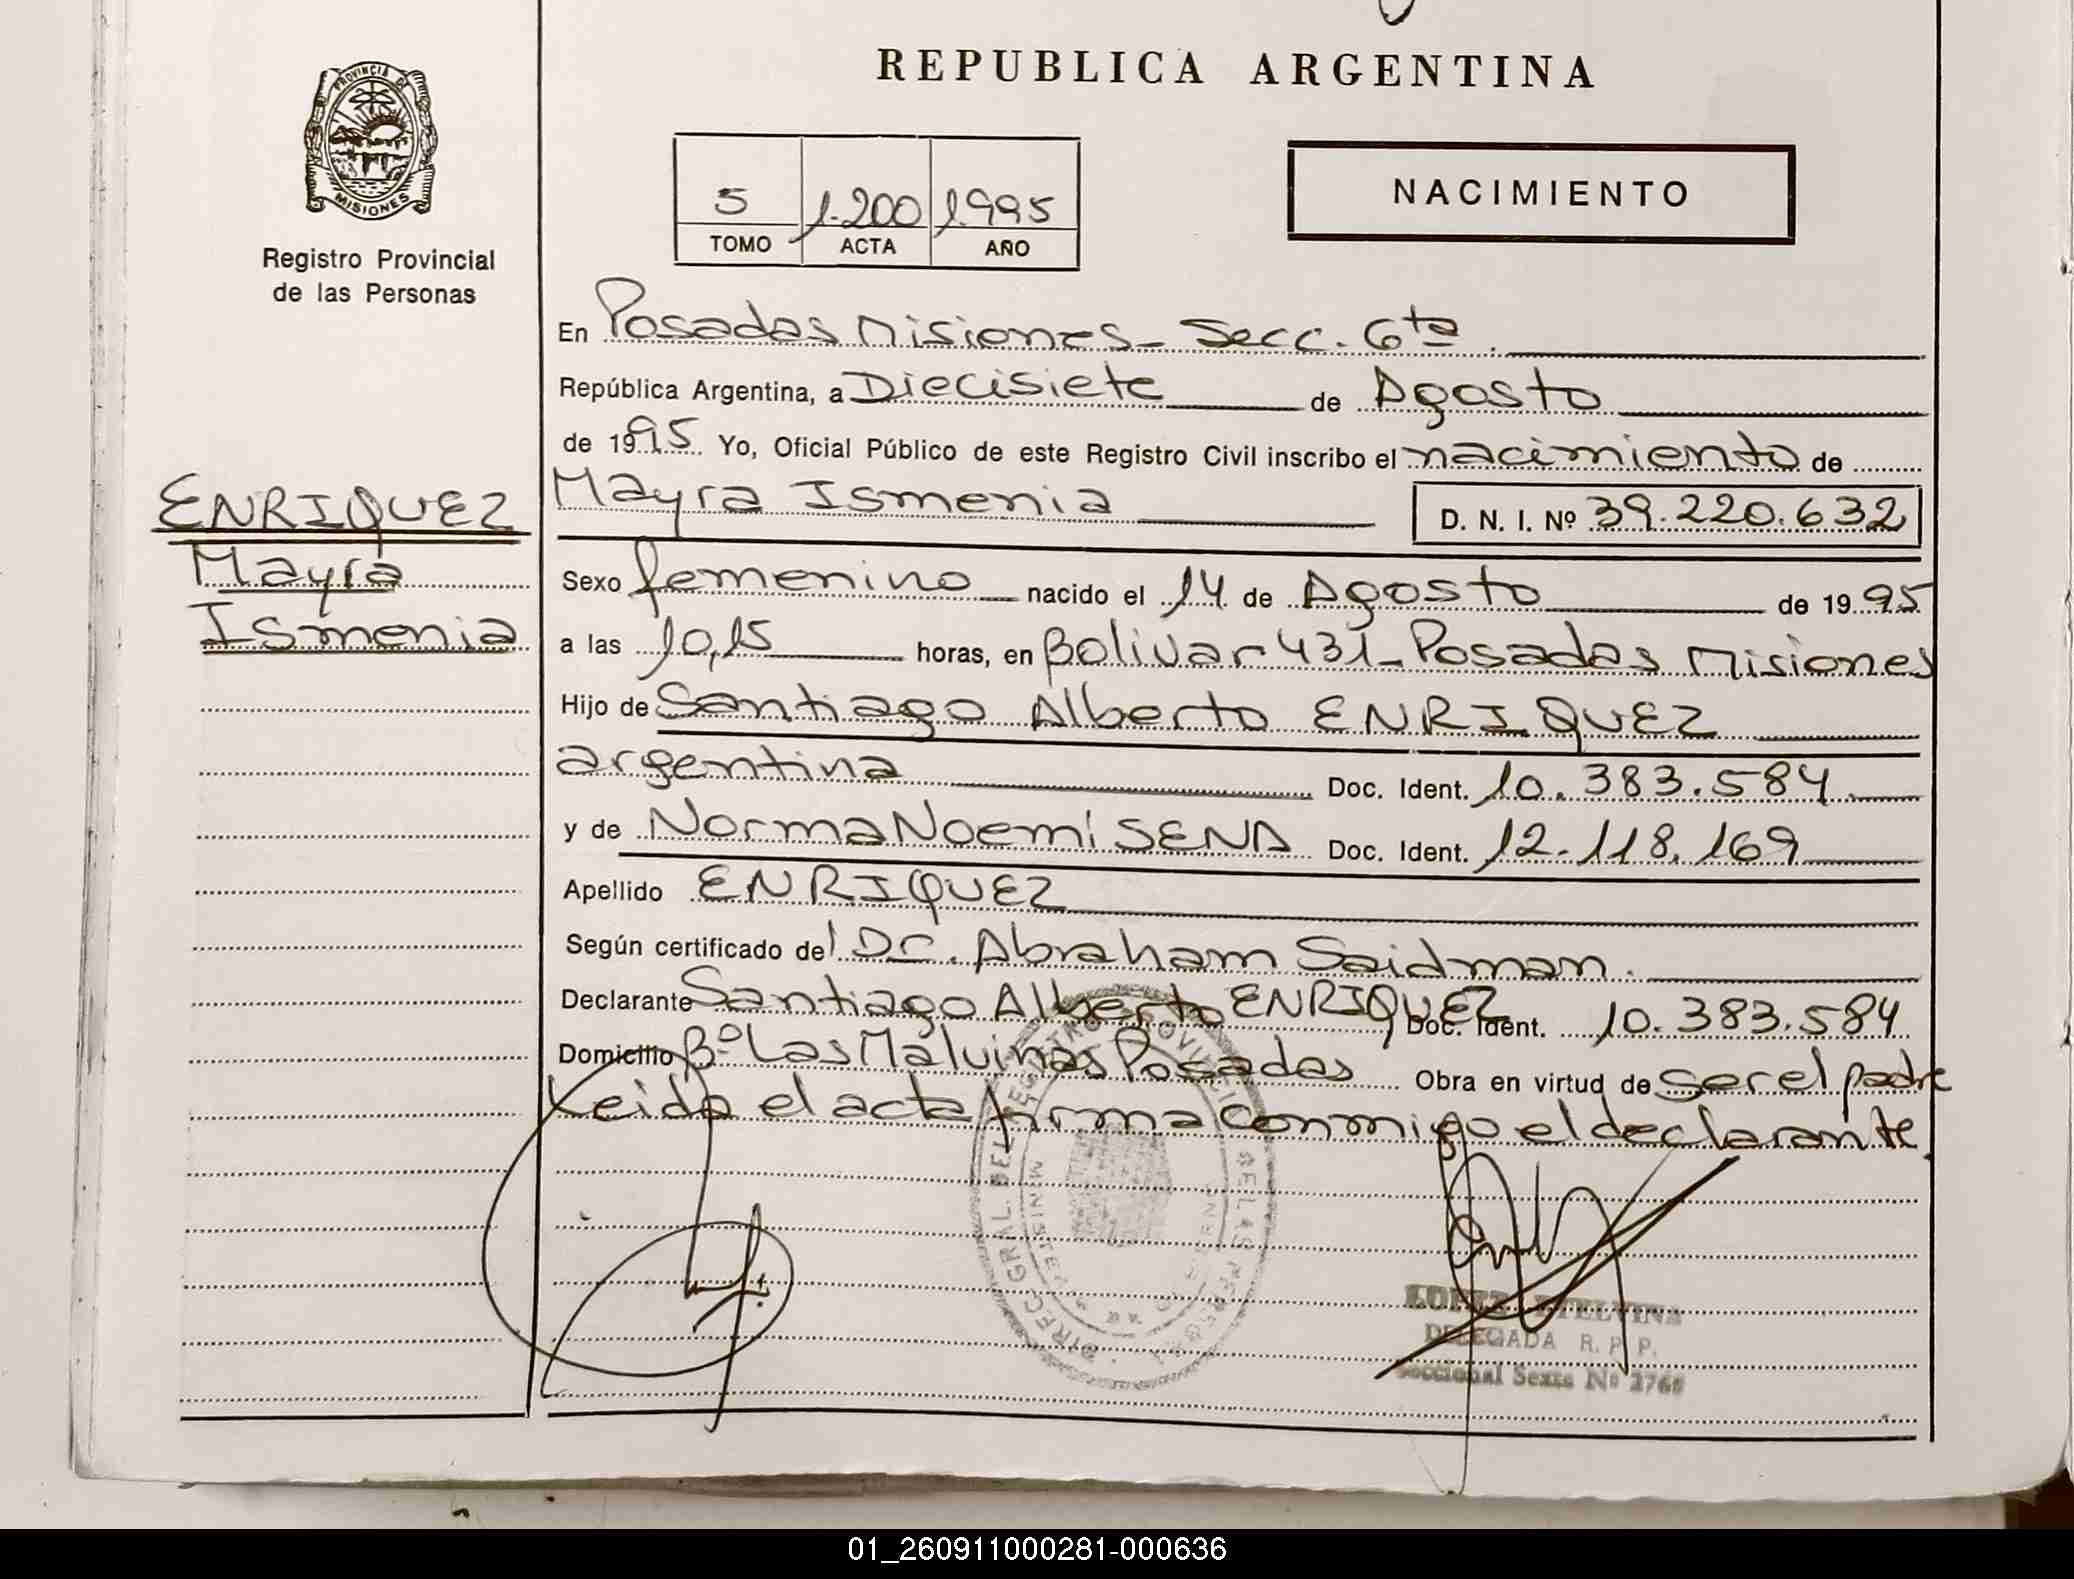 REPUBLICA ARGENTINA
PROVINCIA DE
MISIONES
Registro Provincial
de las Personas
5 1.200 1.995
TOMO ACTA AÑO
NACIMIENTO
En Posadas Misiones - Secc. 6ta.
República Argentina, a Diecisiete de Agosto
de 1995. Yo, Oficial Público de este Registro Civil inscribo el nacimiento de
ENRIQUEZ
Mayra
Ismenia
Mayra Ismenia D. N. I. Nº 39.220.632
Sexo femenino nacido el 14 de Agosto de 1995
a las 10,15 horas, en Bolivar 431 - Posadas Misiones
Hijo de Santiago Alberto ENRIQUEZ
argentina Doc. Ident. 10.383.584
y de Norma Noemí SENA Doc. Ident. 12.118.169
Apellido ENRIQUEZ
Según certificado del Dr. Abraham Saidman.
Declarante Santiago Alberto ENRIQUEZ, Doc. Ident. 10.383.584
Domicilio Bº Las Malvinas Posadas Obra en virtud de ser el padre
Leida el acta firma conmigo el declarante.
DIREC. GRAL. DEL REGISTRO PROVINCIAL DE LAS PERSONAS
LOPEZ ETELVINA
DELEGADA R. P. P.
Seccional Sexta Nº
01_260911000281-000636